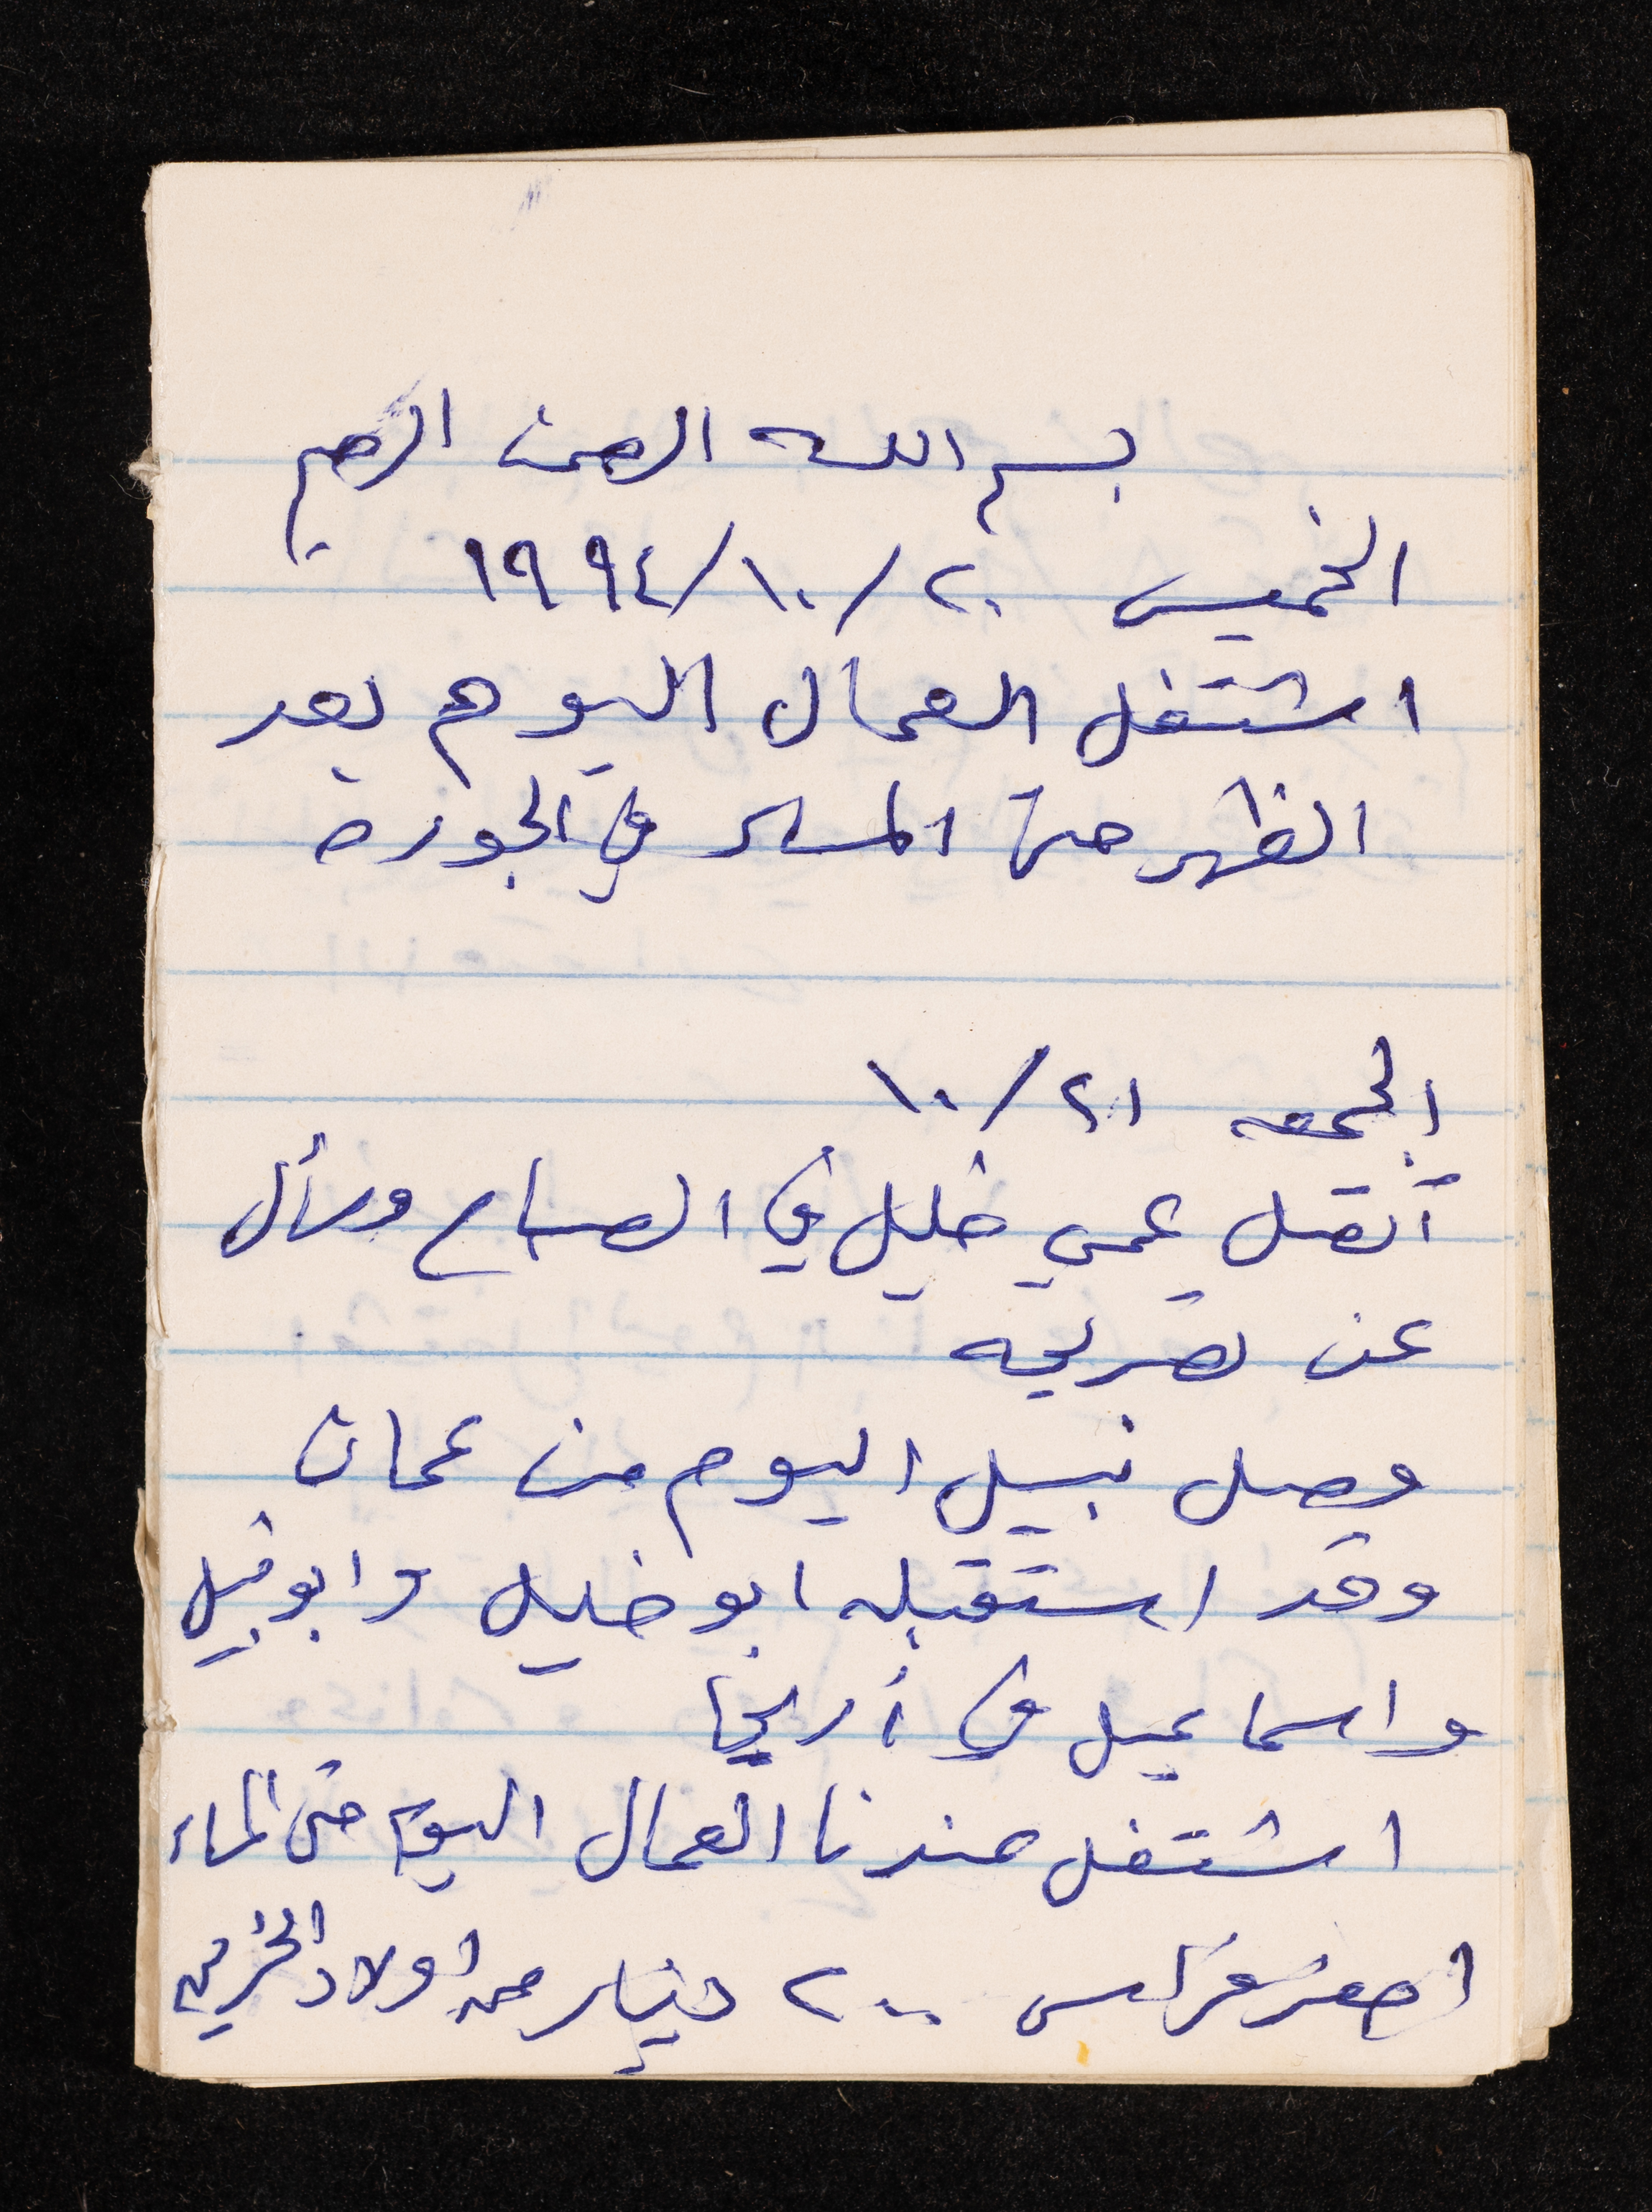 بسم الله الرحمن الرحيم
الخميس ٢٠/١٠/١٩٩٤
اشتغل العمال اليوم بعد
الظهر حتى المساء في الجورة
الجمعه ٢١/١٠
أتصل عمي خليل في الصباح وسأل
عن تصريحه
وصل نبيل اليوم من عمان
وقد استقبله ابو خليل وابو نبيل
واسماعيل في أريحا
اشتغل عندنا العمال اليوم حتى المساء
احضر فراس ٢٠٠ دينار من اولاد